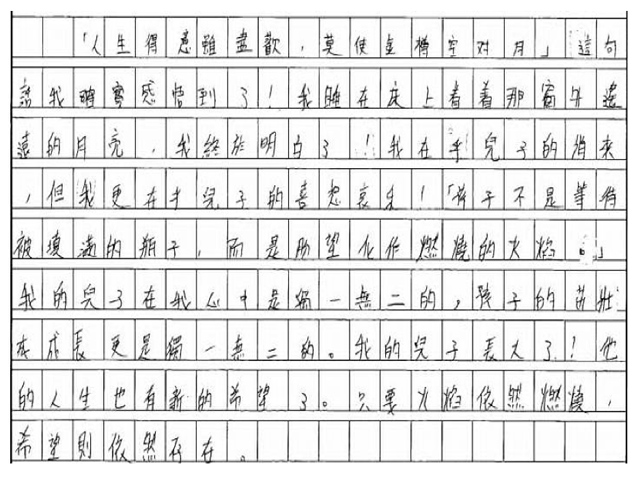 「人生得意雖盡歡,莫使金樽空对月」這句
話我確實感覺到了!我睡在床上看着那窗外遙
遠的月亮,我終於明白了!我在乎兒子的將來
,但我更在乎兒子的喜怒哀乐!「孩子不是等待
被填滿的瓶子,而是盼望化作燃燒的火焰。」
我的兒子在我心中是獨一無二的,孩子的茁壯
成長更是獨一無二的。我的兒子長大了!他
的人生也有新的希望了。只要火焰依然燃燒,
希望則依然存在。